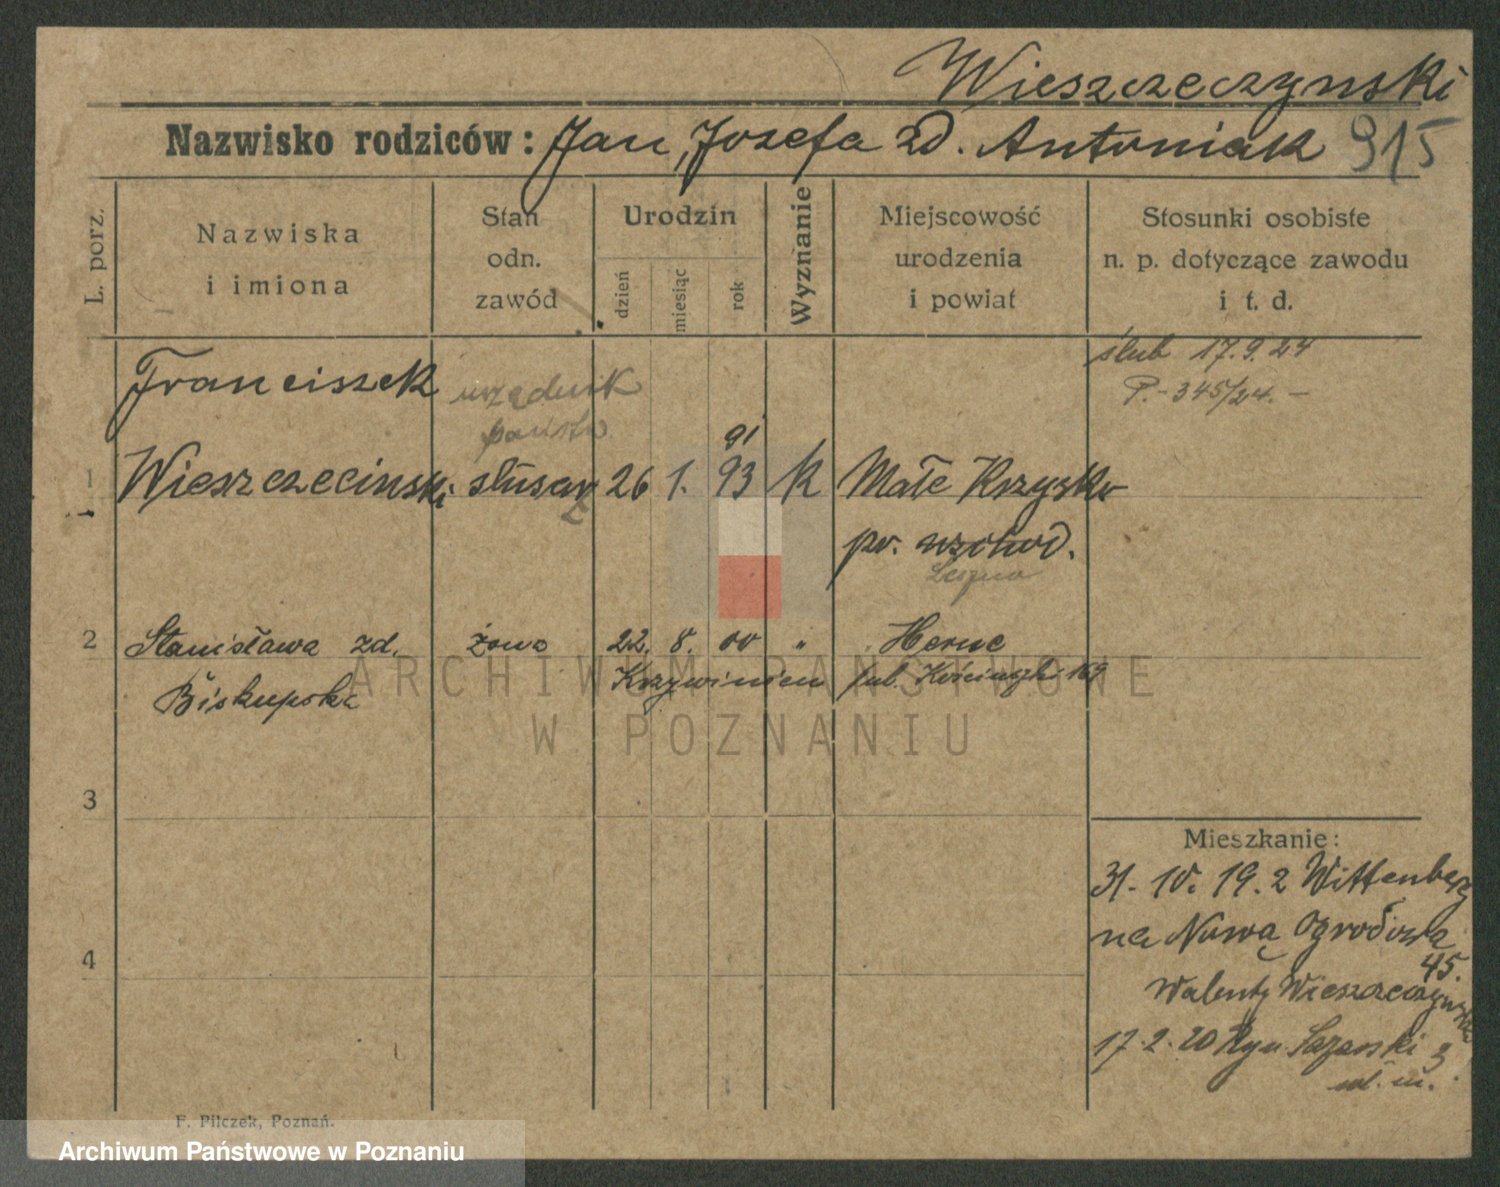 Wieszczeczynski
Nazwisko rodziców: Jan, Jozefa zd. Antoniak 915
L. porz.
Nazwiska
i imiona
Stan
odn.
zawód
Urodzin
dzień
miesiąc
rok
Wyznanie
Miejscowość
urodzenia
i powiat
Stosunki osobiste
n. p. dotyczące zawodu
i t. d.
ślub 17.9.24
P.-345/24.-
Franciszek urzędnik
państw.
91
1 Wieszczecinski ślusarz 26 1. 93 k Małe Krzysko
pw. wschod.
Leszno
2 Stanisława zd. żona 22. 8. 00 " Herne
Biskupska Krzywinien Kościuszki 169
3
4
Mieszkanie:
31. 10. 19. z Wittenberg
na Nową Ogrodową
45.
Walenty Wieszczeczynski
17.2.20 Ryn. Łazarski 3
F. Pilczek, Poznań.
ARCHIWUM PAŃSTWOWE
W POZNANIU
Archiwum Państwowe w Poznaniu